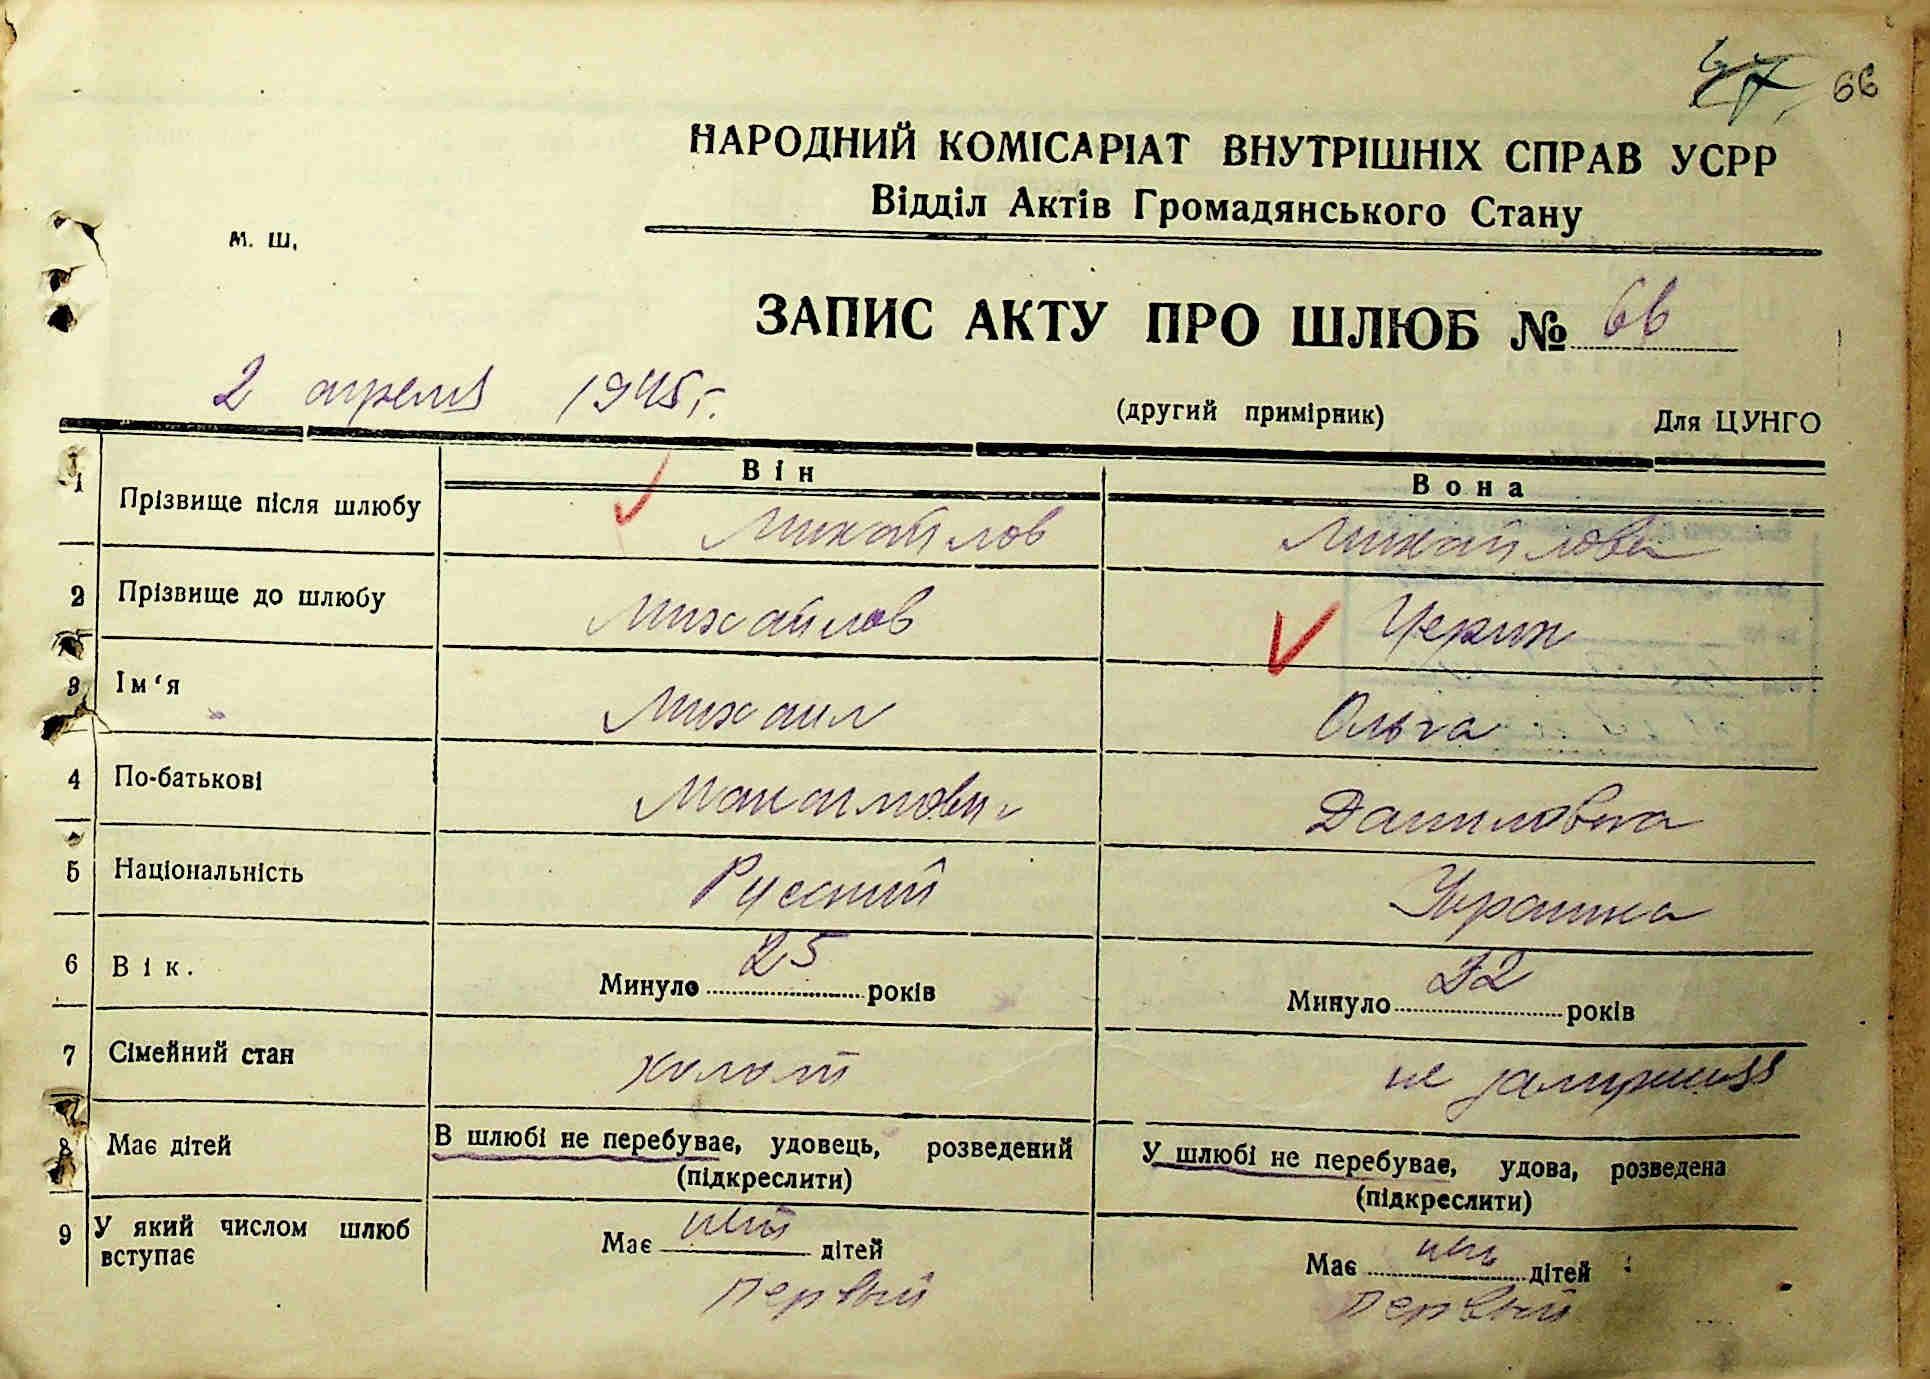 66
НАРОДНИЙ КОМІСАРІАТ ВНУТРІШНІХ СПРАВ УСРР
Відділ Актів Громадянського Стану
м. ш.
ЗАПИС АКТУ ПРО ШЛЮБ № 66
2 апреля 1945 г.
(другий примірник) Для ЦУНГО
Він Вона
1 Прізвище після шлюбу Михайлов Михайлова
2 Прізвище до шлюбу Михайлов
3 Ім‘я Михаил Ольга
4 По-батькові Максимович Даниловна
5 Національність Русский Украинка
6 Вік. Минуло 25 років Минуло 22 років
7 Сімейний стан холост не замужняя
8 Має дітей В шлюбі не перебуває, удовець, розведений У шлюбі не перебуває, удова, розведена
(підкреслити) (підкреслити)
9 У який числом шлюб вступає Має нет дітей Має нет дітей
Первый Первый